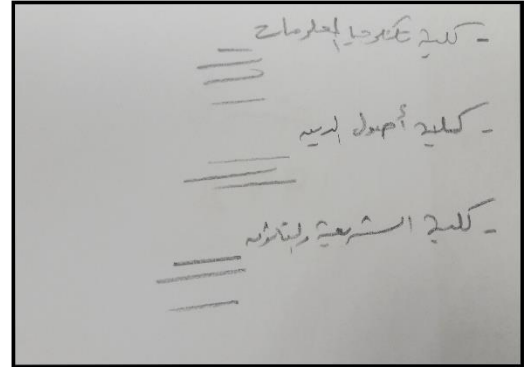 - كلية تكنلوجيا المعلومات
- كلية أصول الدين
- كلية الشريعة والقانون